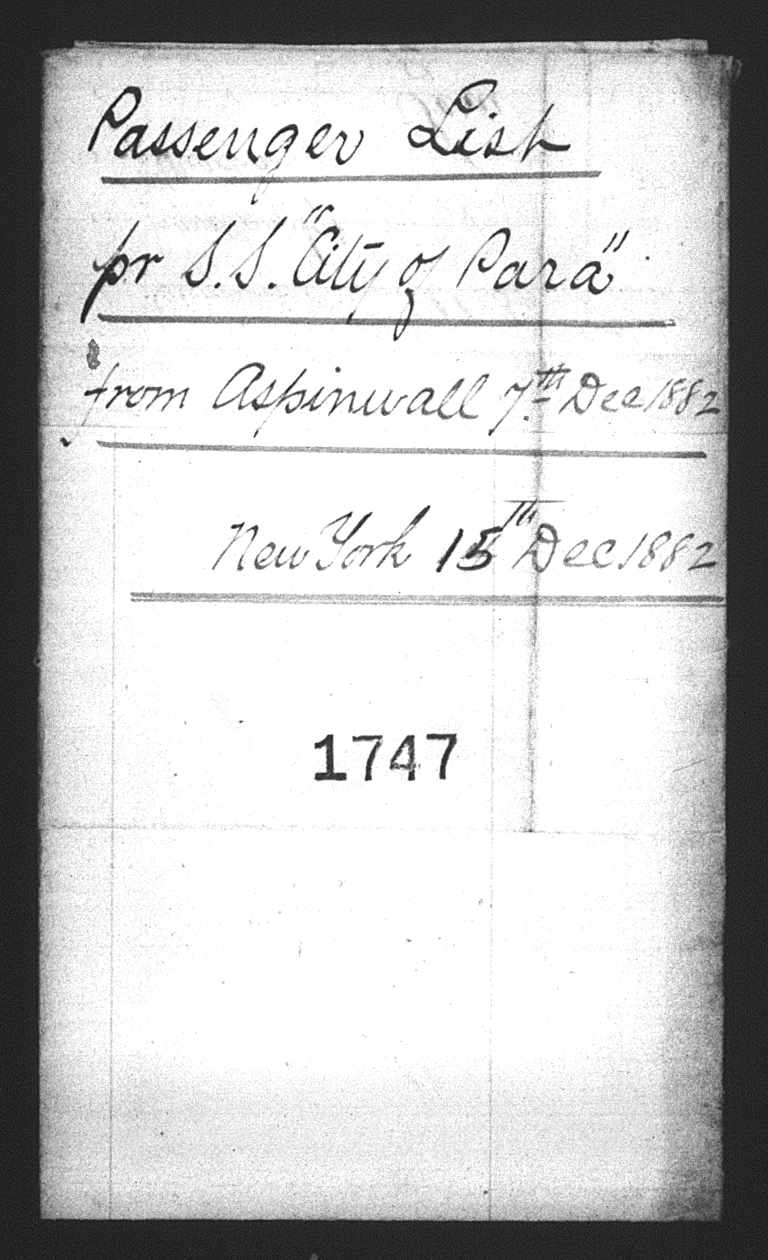 Passenger List
pr S.S. "City of Para"
from Aspinwall 7th Dec 1882
New York 15th Dec 1882
1747